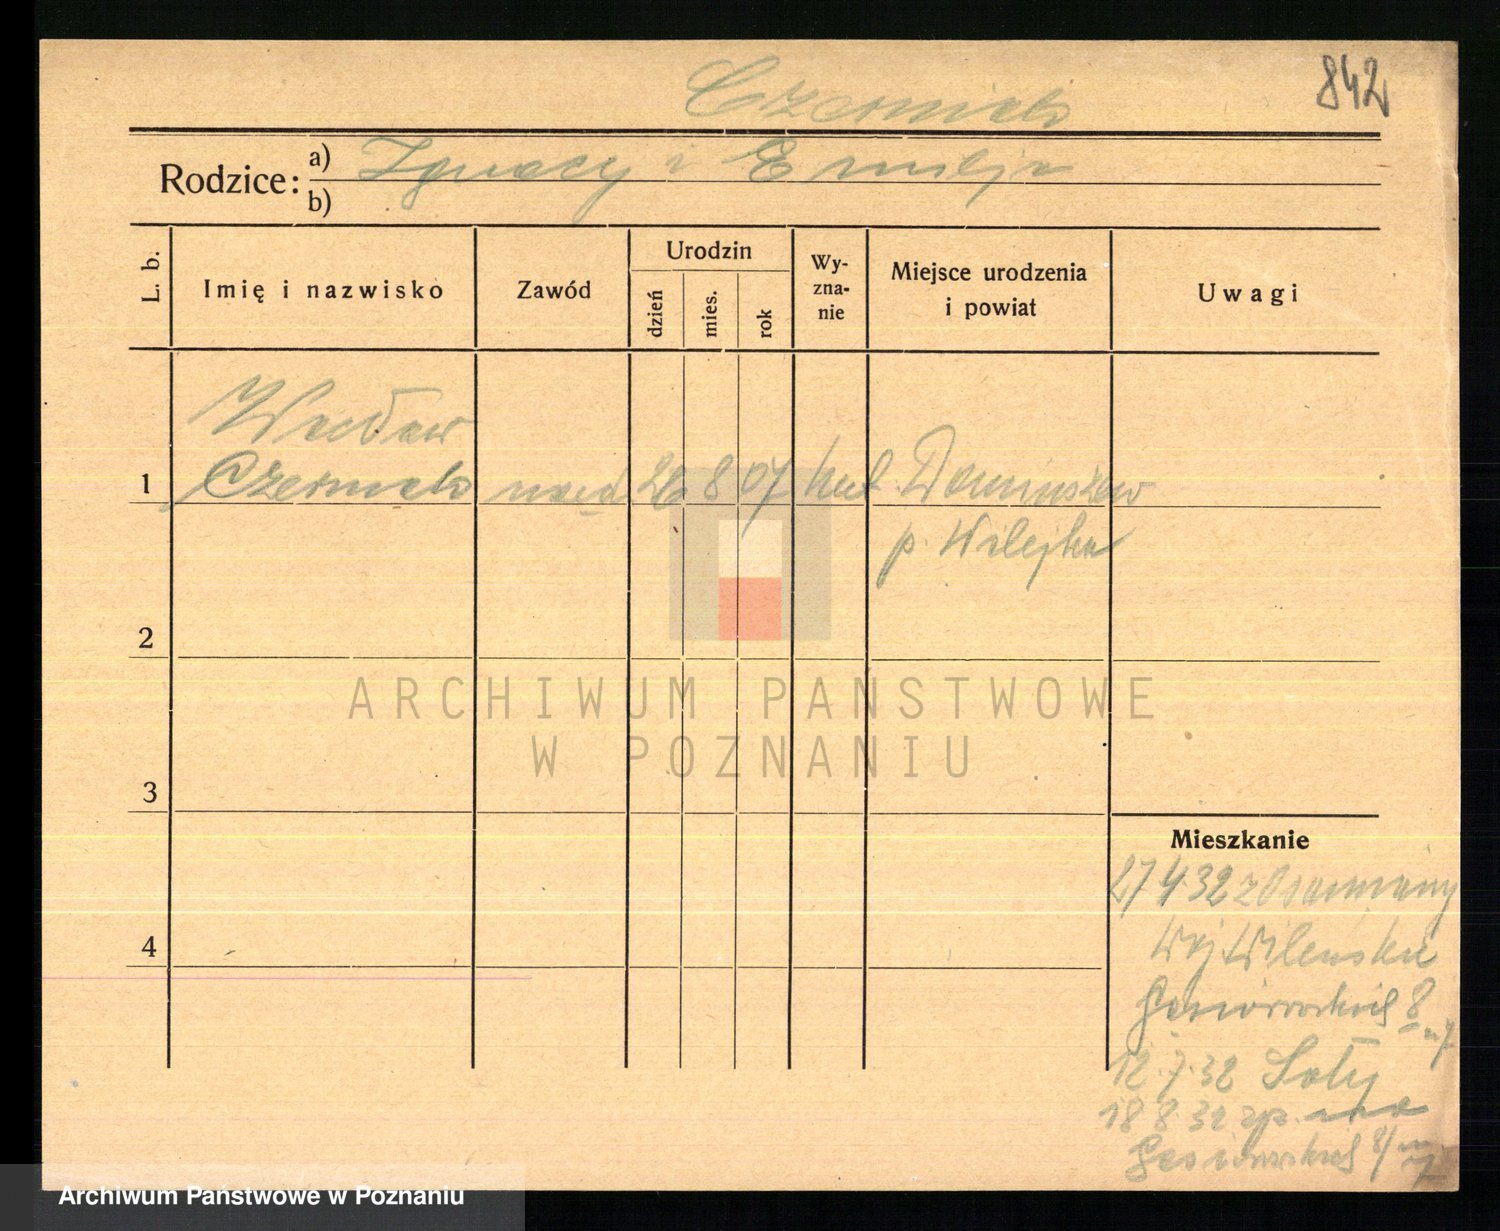 842
Czerniak
Rodzice: a) Ignacy i Emilja
b)
L. b.
Imię i nazwisko
Zawód
Urodzin
dzień
mies.
rok
Wy-
zna-
nie
Miejsce urodzenia
i powiat
Uwagi
Wacław
1 Czerniak 26 8 07 kat
p. Wilejka
2
3
4
Mieszkanie
27 4 32 z Oszmiany
Woj Wileńskie
Gąsiorowskich 8 m 7
12.7.32
18 8 32 zp.
Gąsiorowskich 8/m 7
ARCHIWUM PAŃSTWOWE
W POZNANIU
Archiwum Państwowe w Poznaniu